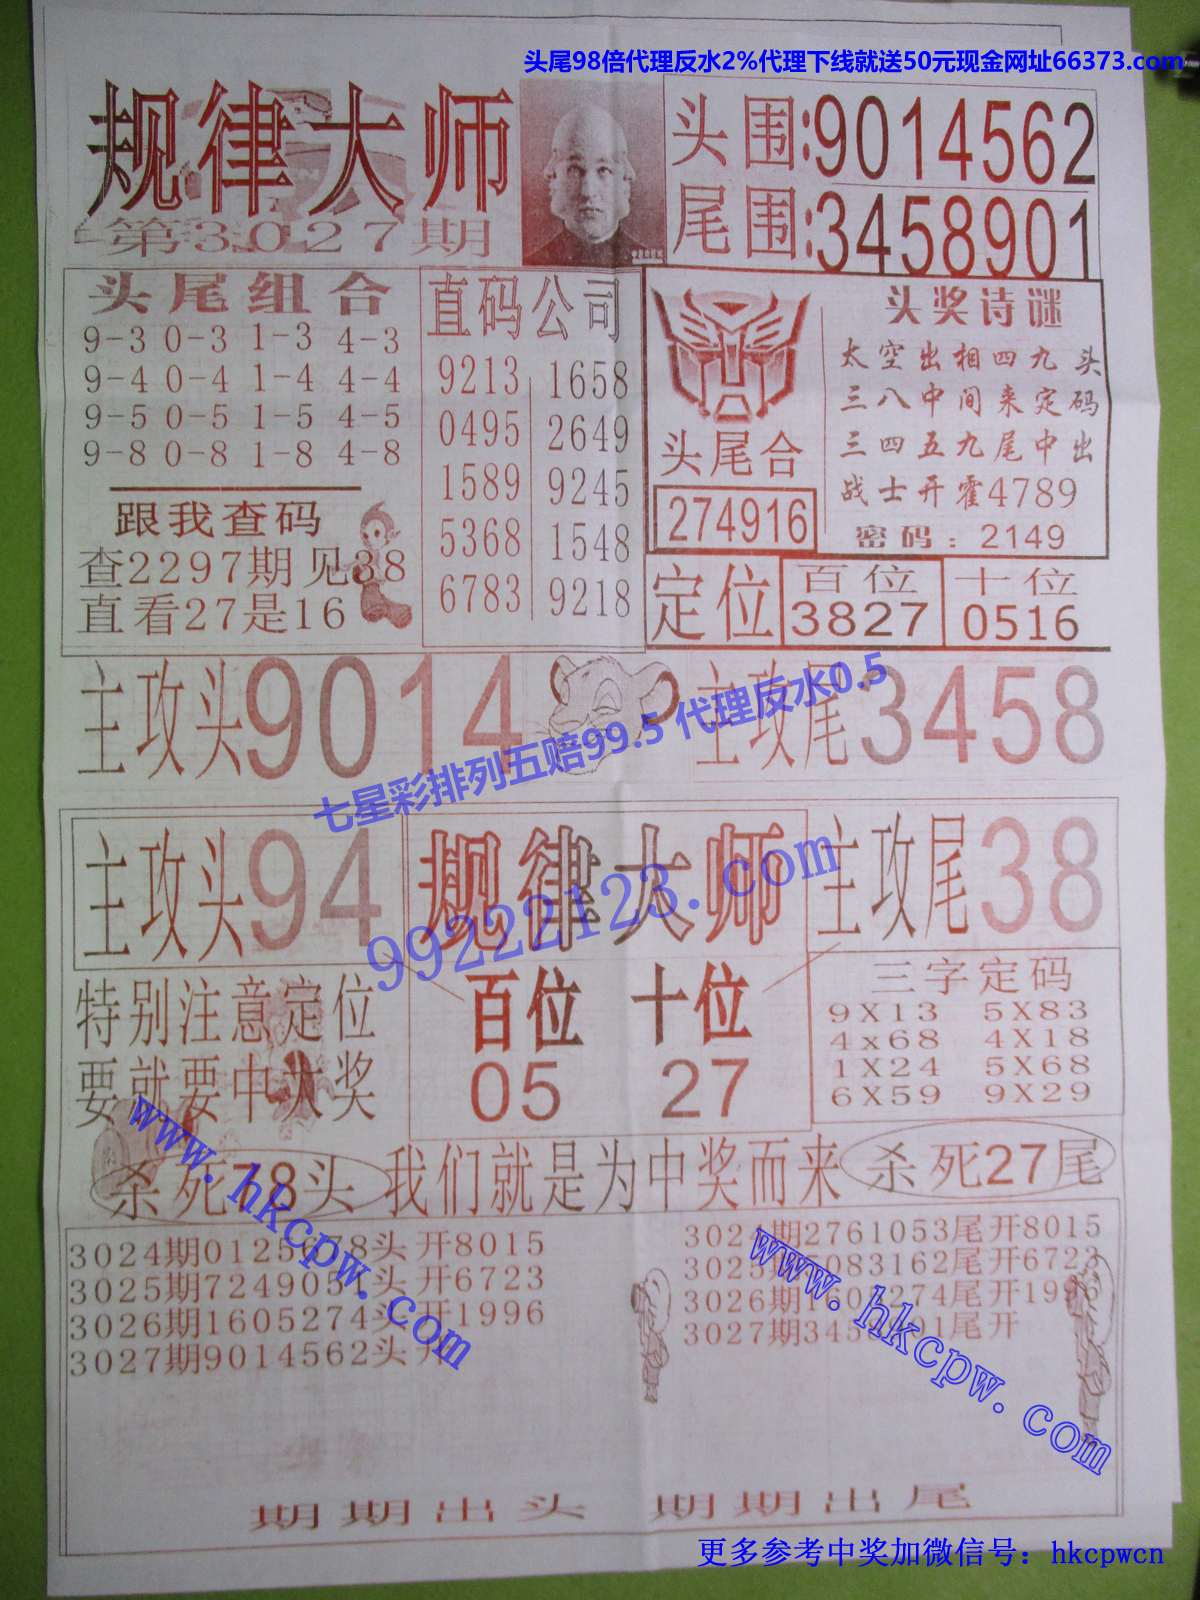 头尾98倍代理反水2%代理下线就送50元现金网址66373.com
规律大师
第3027期
头围:9014562
尾围:3458901
头尾组合
9-3 0-3 1-3 4-3
9-4 0-4 1-4 4-4
9-5 0-5 1-5 4-5
9-8 0-8 1-8 4-8
跟我查码
查2297期见38
直看27是16
直码公司
9213 1658
0495 2649
1589 9245
5368 1548
6783 9218
头尾合
274916
头奖诗谜
太空出相四九头
三八中间来定码
三四五九尾中出
战士开霍4789
密码：2149
定位
百位
3827
十位
0516
主攻头9014
主攻尾3458
七星彩排列五赔99.5 代理反水0.5
主攻头94
规律大师
主攻尾38
99222123.com
特别注意定位
要就要中大奖
百位 十位
05 27
三字定码
9X13 5X83
4x68 4X18
1X24 5X68
6X59 9X29
杀死78头
我们就是为中奖而来
杀死27尾
www.hkcpw.com
3024期0125678头开8015
3025期7249051头开6723
3026期1605274头开1996
3027期9014562头开
www.hkcpw.com
3024期2761053尾开8015
3025期5083162尾开6723
3026期1605274尾开1996
3027期3458901尾开
期期出头 期期出尾
更多参考中奖加微信号：hkcpwcn